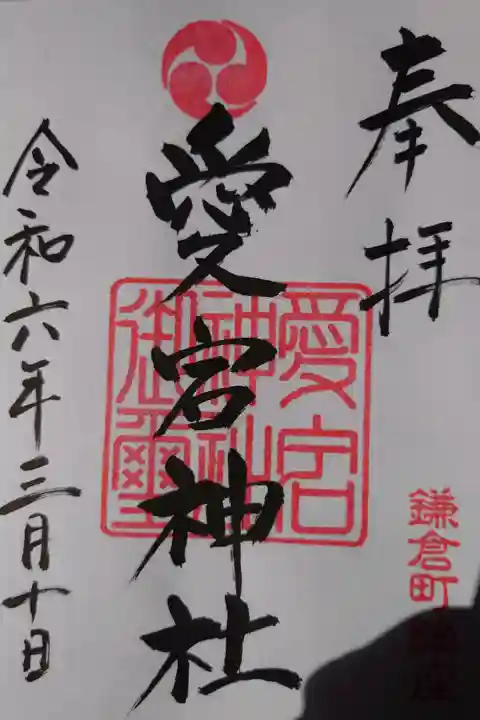 奉拝
鎌倉町鎮座
愛宕神社
愛宕
神社
御璽
令和六年三月十日